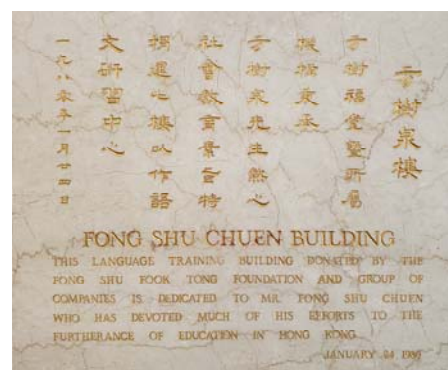 方樹泉樓
方樹福堂暨所屬
機構秉承
方樹泉先生熱心
社會教育旨特
捐建此樓以作語
文研習中心
一九八零年一月廿四日
FONG SHU CHUEN BUILDING
THIS LANGUAGE TRAINING BUILDING DONATED BY THE
FONG SHU FOOK TONG FOUNDATION AND GROUP OF
COMPANIES IS DEDICATED TO MR. FONG SHU CHUEN
WHO HAS DEVOTED MUCH OF HIS EFFORTS TO THE
FURTHERANCE OF EDUCATION IN HONG KONG
JANUARY 24 1980